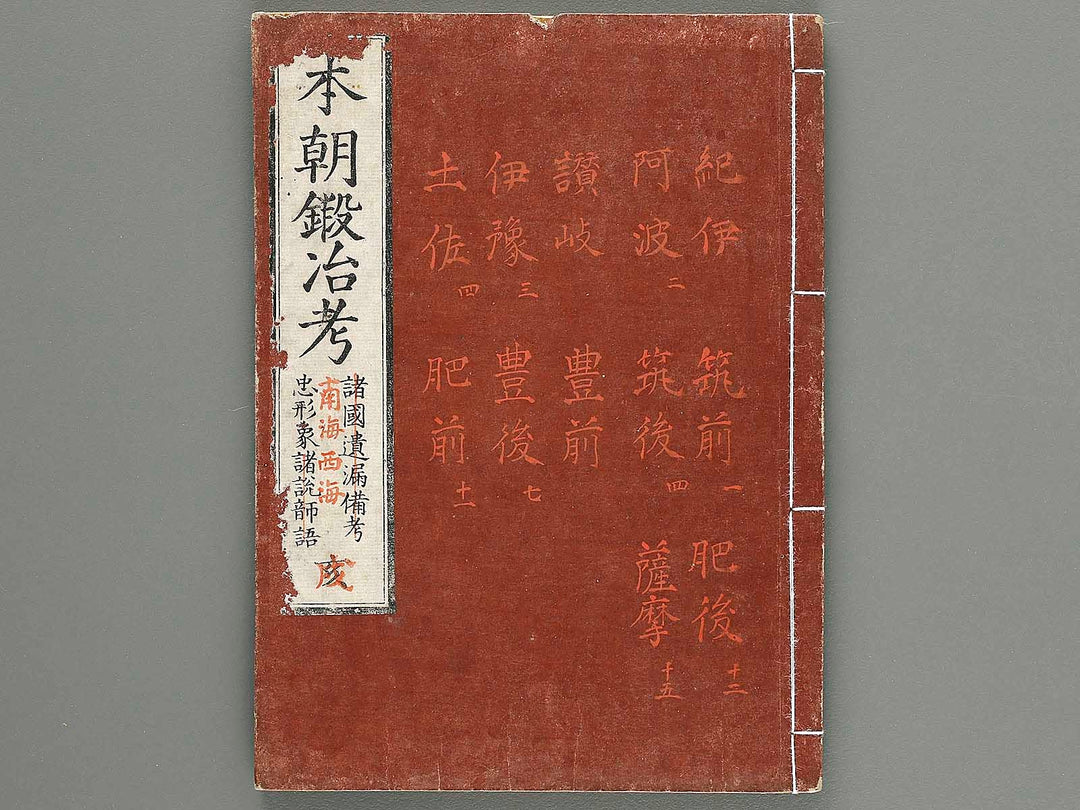 紀伊
阿波 二
讃岐
伊豫 三
土佐 四
筑前 一
筑後 四
豊前
豊後 七
肥前 十一
肥後 十二
薩摩 十五
本朝鍛冶考
諸國遺漏備考
南海西海
忠形象諸説師語
戌